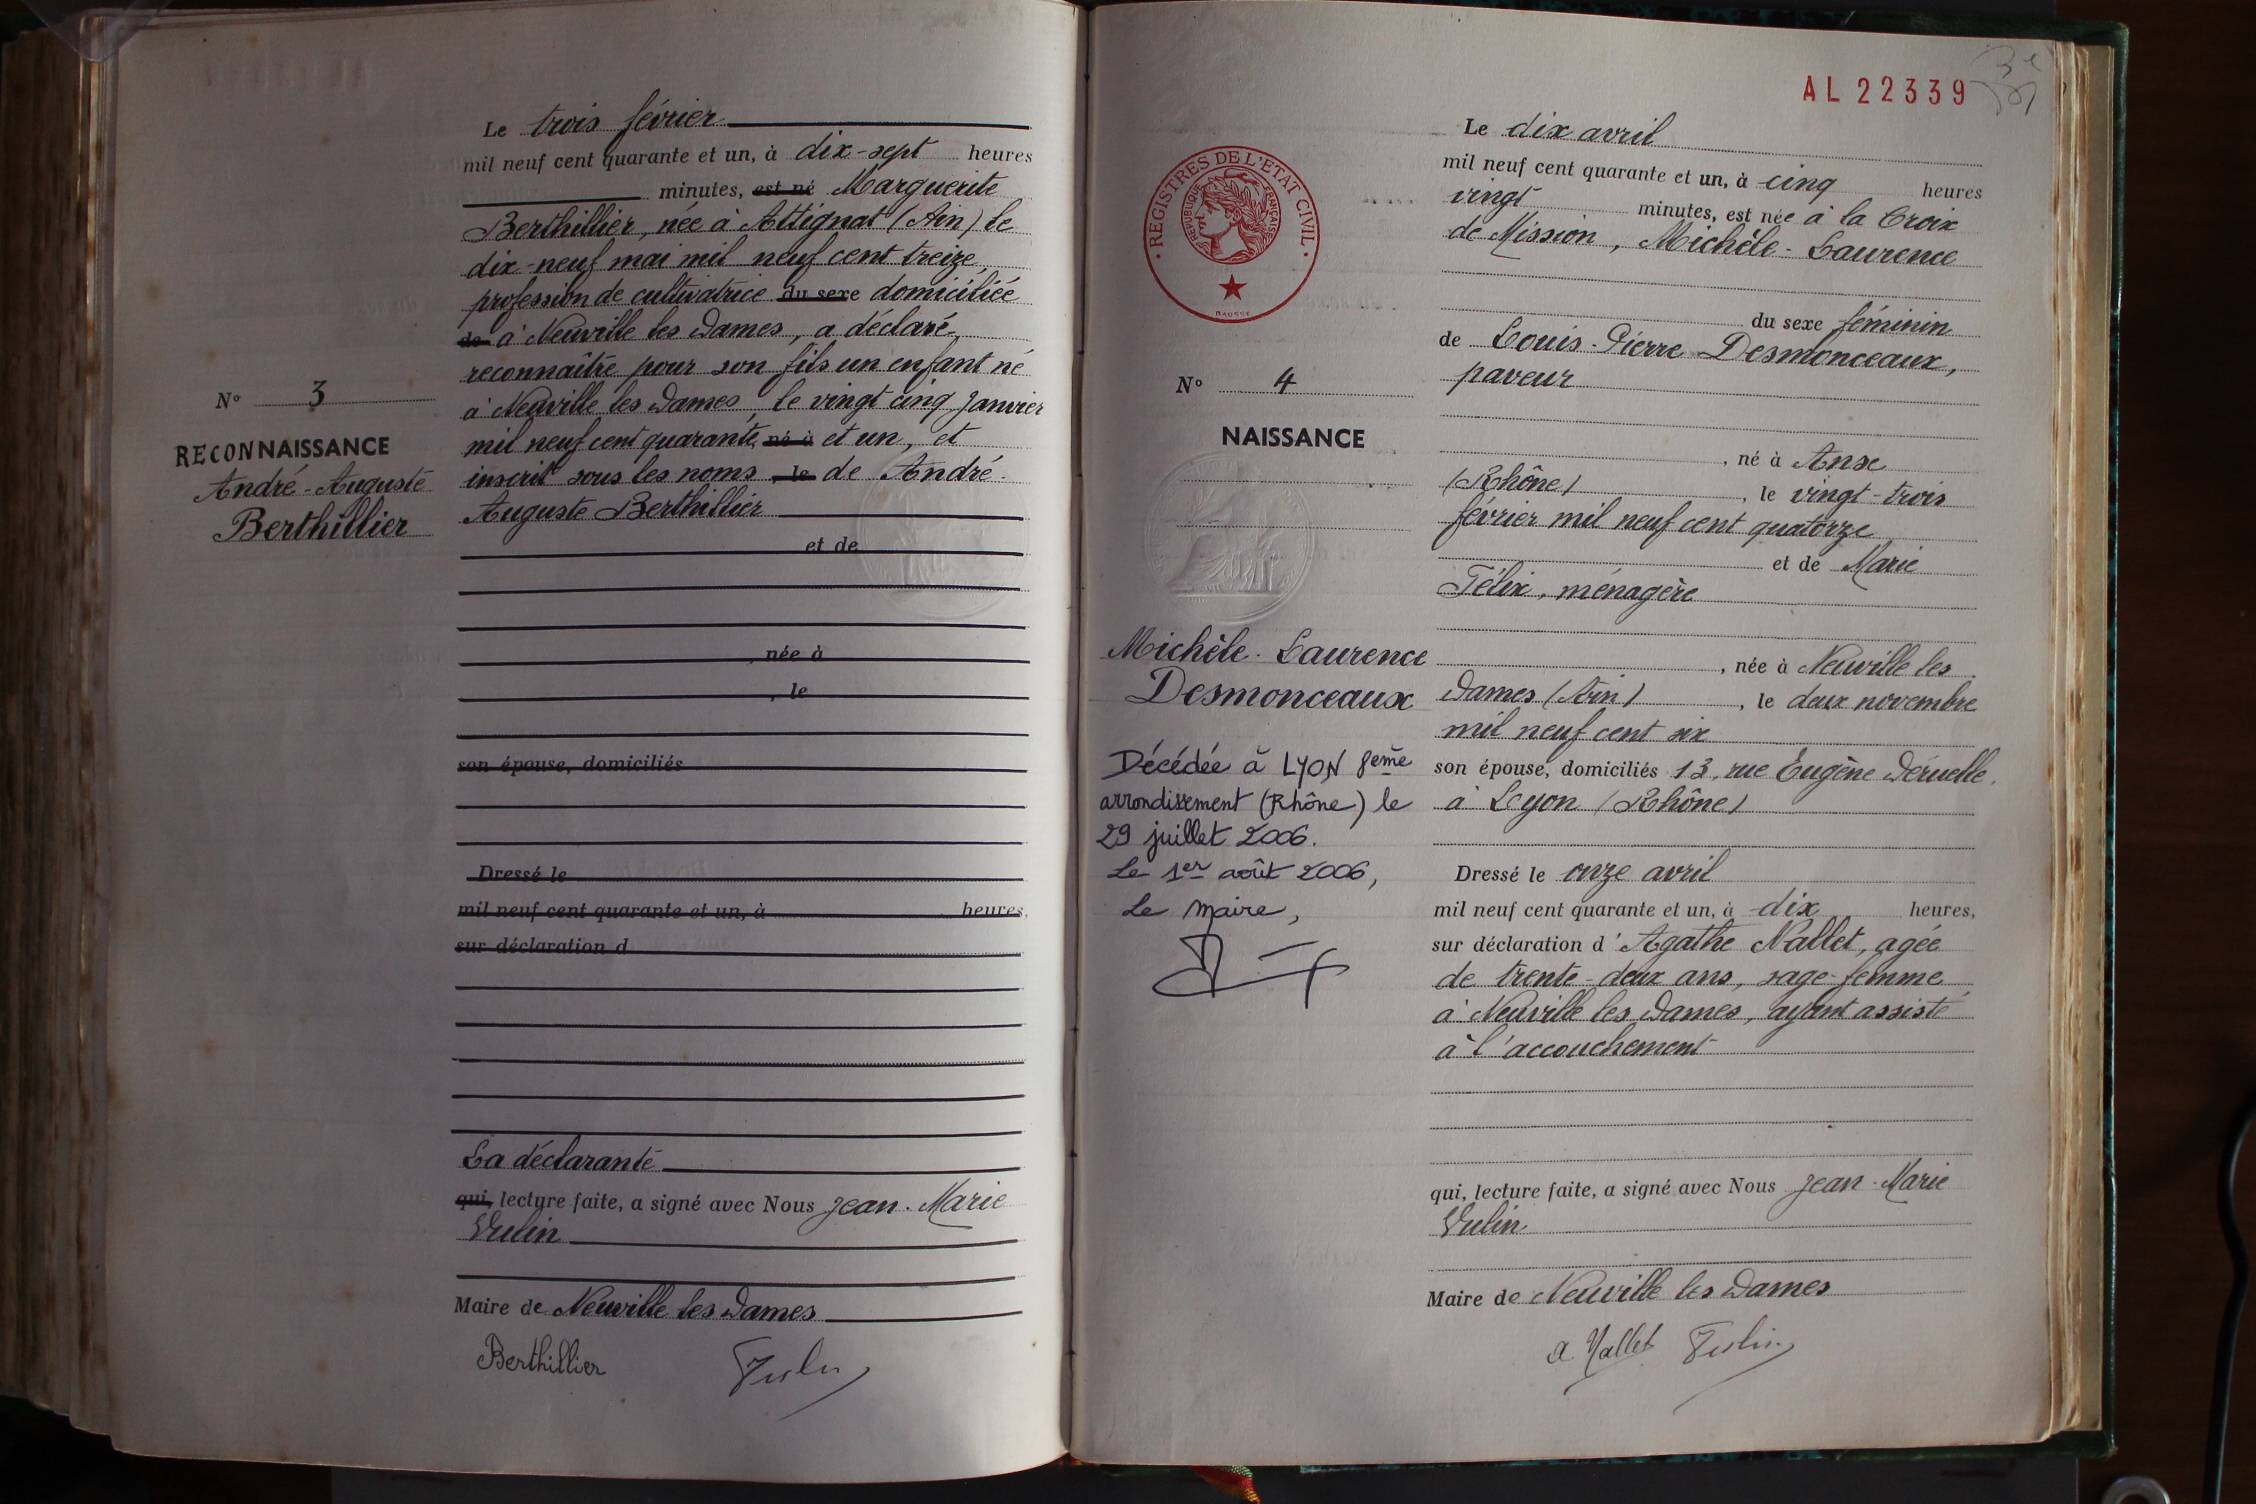 Le trois février
mil neuf cent quarante et un, à dix-sept heures
minutes, est né Marguerite
Berthillier, née à Attignat (Ain) le
dix-neuf mai mil neuf cent treize,
profession de cultivatrice du sexe domiciliée
de à Neuville les Dames, a déclaré
reconnaître pour son fils un enfant né
à Neuville les Dames, le vingt cinq janvier
mil neuf cent quarante né à et un, et
inscrit sous les noms , le de André-
Auguste Berthillier
et de
, née à
, le
son épouse, domiciliés
Dressé le
mil neuf cent quarante et un, à heures,
sur déclaration d
La déclarante
qui, lecture faite, a signé avec Nous Jean-Marie
Vulin
Maire de Neuville les Dames
Berthillier Vulin
N° 3
RECONNAISSANCE
André-Auguste
Berthillier
AL 22339
REGISTRES DE L'ETAT CIVIL
REPUBLIQUE FRANÇAISE
N° 4
NAISSANCE
Michèle-Laurence
Desmonceaux
Décédée à LYON 8ème
arrondissement (Rhône) le
29 juillet 2006.
Le 1er août 2006,
Le Maire,
Le dix avril
mil neuf cent quarante et un, à cinq heures
vingt minutes, est née à la Croix
de Mission, Michèle-Laurence
du sexe féminin
de Louis-Pierre Desmonceaux,
paveur
, né à Anse
(Rhône), le vingt-trois
février mil neuf cent quatorze
et de Marie
Félix, ménagère
, née à Neuville les
Dames (Ain), le deux novembre
mil neuf cent six
son épouse, domiciliés 13, rue Eugène Déruelle,
à Lyon (Rhône)
Dressé le onze avril
mil neuf cent quarante et un, à dix heures,
sur déclaration d'Agathe Nallet, agée
de trente-deux ans, sage-femme
à Neuville les Dames, ayant assisté
à l'accouchement
qui, lecture faite, a signé avec Nous Jean-Marie
Vulin
Maire de Neuville les Dames
a Nallet Vulin